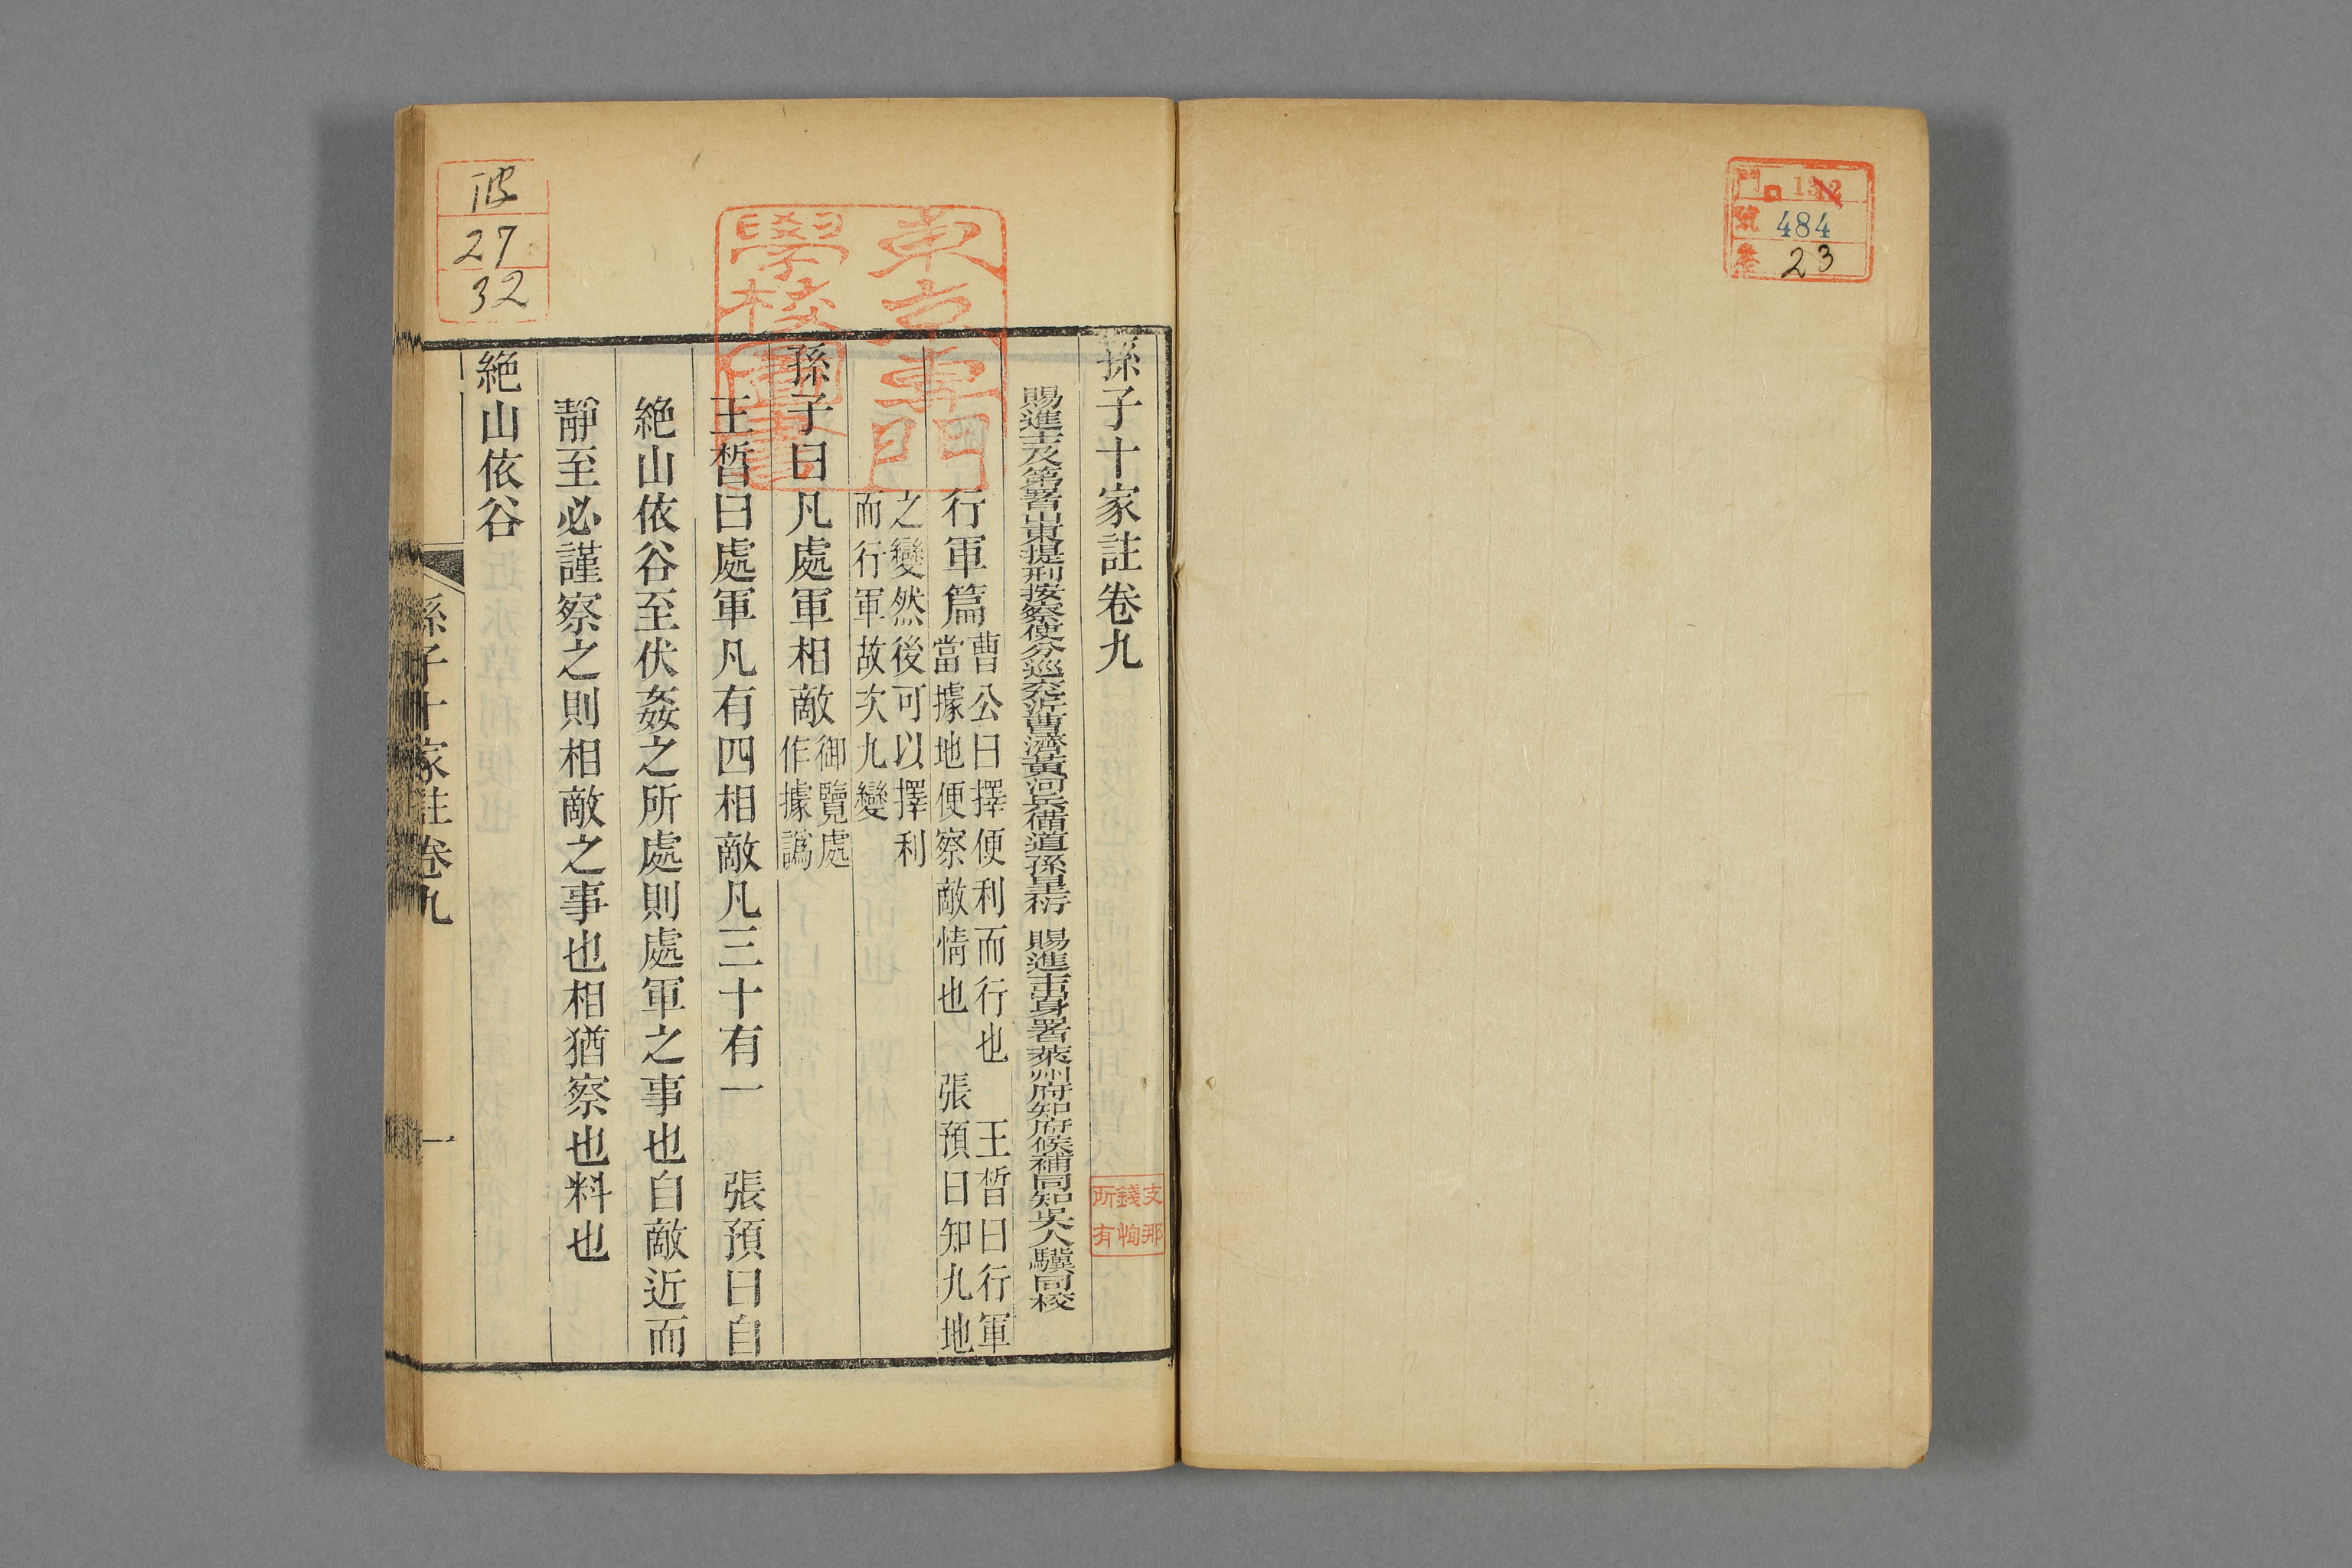 門 ロ 152
號 484
卷 23
孫子十家註卷九
賜進士及第署山東提刑按察使分巡兗沂曹濟黃河兵備道孫星衍 賜進士出身署萊州府知府候補同知吳人驥同校
行軍篇
曹公曰擇便利而行也 王晳曰行軍
當據地便察敵情也 張預曰知九地
之變然後可以擇利
而行軍故次九變
孫子曰凡處軍相敵
御覽處
作據譌
王晳曰處軍凡有四相敵凡三十有一 張預曰自
絶山依谷至伏姦之所處則處軍之事也自敵近而
靜至必謹察之則相敵之事也相猶察也料也
絶山依谷
孫子十家註卷九
一
東京專門
學校圖書
支那
錢恂
所有
27
32